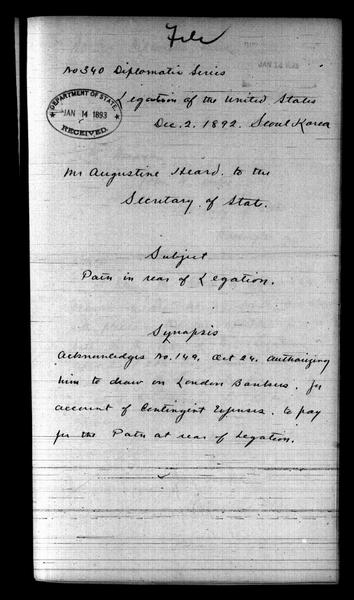 File
No 340 Diplomatic Series
JAN 14 1893
Legation of the United States
DEPARTMENT OF STATE,
JAN 14 1893
RECEIVED.
Dec. 2. 1892. Seoul Korea
Mr Augustine Heard. to the
Secretary of State.
Subject
Path in rear of Legation.
Synopsis
Acknowledges No. 149. Oct 24. Authorizing
him to draw on London Bankers. for
account of Contingent Expenses. to pay
for the Path at rear of Legation.